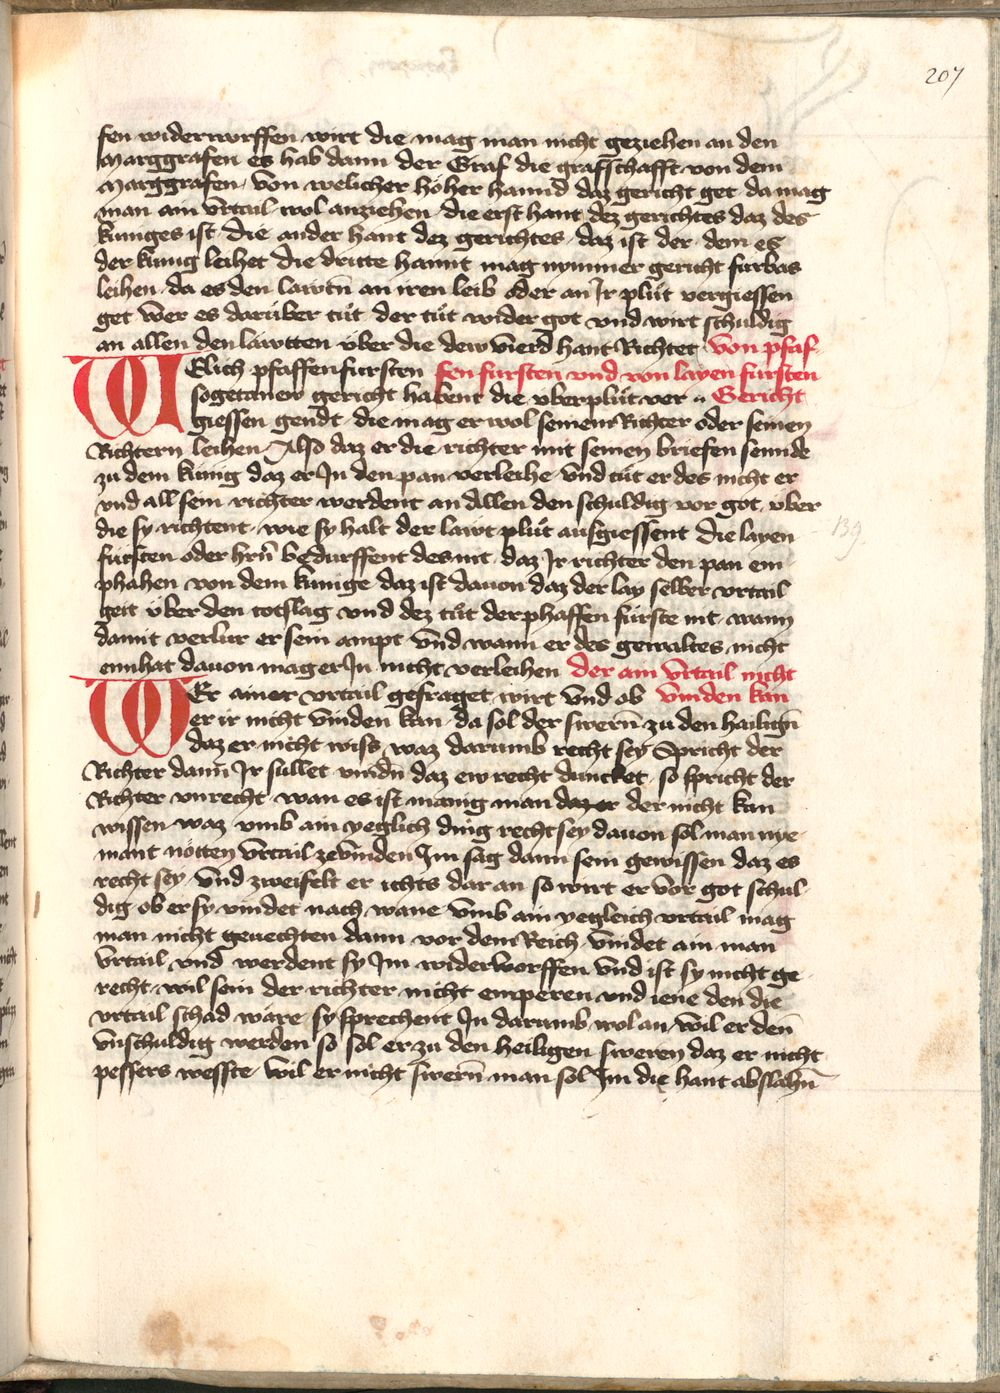 207
fen widerworffen wirt die mag man nicht geziehen an den
Marggrafen es hab dann der Graf die grafschafft von dem
Marggrafen. Von welicher höher hannd daz gericht get da mag
man ain vrtail wol anziehen. die erst hant dez gerichtes daz des
kuniges ist. die ander hant dez gerichtes. daz ist der. dem es
der kunig leihet die dritte hannt mag nymmer gericht furbas
leihen. da es den lawtn̄ an iren leib oder an Jr plůt vergiessen
get wer es darüber tůt der tůt wider got vnd wirt schuldig
an allen den läwtten über die dew vierd hant Richtet Von pfaf
WElich pfaffenfursten fen fursten vnd von layen fursten
sogetanew gericht habent die vberplůt ver Gericht
giessen gendt. die mag er wol seinem Richter oder seinen
Richtern leihen. Also daz er die richter mit seinen briefen sennde
zu dem kunig daz er Jn den pan verleihe. Vnd tůt er des nicht er
vnd all sein richter werdent an Allen den schuldig vor got. vber
die sy richtent. wie sy halt der lawt plůt ausgiessent die layen
139
fürsten oder hrn̄ bedurffent des nit. daz Jr richter den pan em
phahen von dem kunige daz ist dauon daz der lay selber vrtail
geit über den totslag vnd dez tůt der phaffen fürste nit. wann
damit verlur er sein ampt. Vnd wann er des gewaltes nicht
ennhat dauon mag er Jn nicht verleihen der ain Vrtail nicht
WEr ainer vrtail gefraget wirt Vnd ob vinden kan
er ir nicht vinden kan. da sol der swern̄ zu den hailign̄
daz er nicht wiss waz darumb recht sey Spricht der
Richter dann̄ Jr sullet vindn̄ daz ew recht duncket. so spricht der
Richter vnrecht. wan es ist manig man daz er der nicht kan
wissen waz vmb ain yeglich ding recht sey dauon sol man nye
mant nötten Vrtail zeVinden Jm sag dann sein gewissen daz es
recht sey. Vnd zweifelt er ichts dar an so wirt er vor got schul
dig ob er sy vindet nach wane. Vmb ain yegleich vrtail mag
man nicht geuechten dann vor dem Reich. Vindet ain man
Vrtail vnd werdent sy Jm widerworffen Vnd ist sy nicht ge
recht. wil sein der richter nicht emperen vnd iene den die
vrtail schad wäre. sy sprechent Jn darumb wol an. wil er den̄
Vnschuldig werden so sol er zu den heiligen sweren daz er nicht
pessers wesste. wil er nicht swern̄ man sol Jm die hant abslahn̄